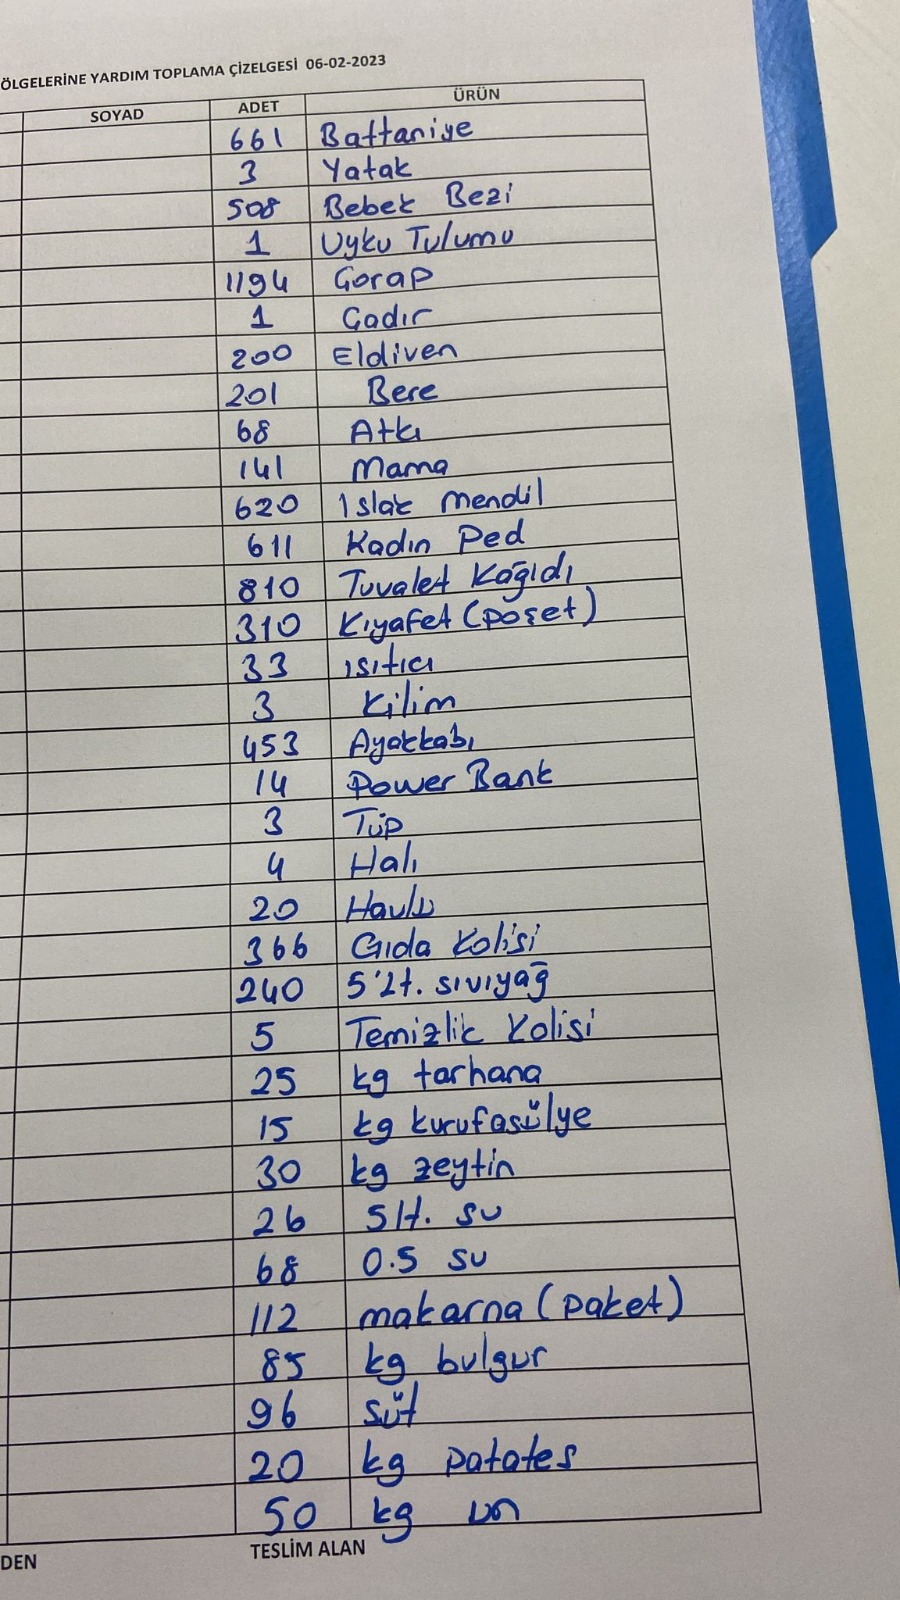 ÖLGELERİNE YARDIM TOPLAMA ÇİZELGESİ 06-02-2023
SOYAD ADET ÜRÜN
661 Battaniye
3 Yatak
508 Bebek Bezi
1 Uyku Tulumu
1194 Çorap
1 Çadır
200 Eldiven
201 Bere
68 Atkı
141 Mama
620 Islak mendil
611 Kadın Ped
810 Tuvalet Kağıdı
310 Kıyafet (poşet)
33 ısıtıcı
3 Kilim
453 Ayakkabı
14 Power Bank
3 Tüp
4 Halı
20 Havlu
366 Gıda Kolisi
240 5'Lt. sıvıyağ
5 Temizlik Kolisi
25 kg tarhana
15 kg kurufasülye
30 kg zeytin
26 5lt. su
68 0.5 su
112 makarna (paket)
85 kg bulgur
96 süt
20 kg patates
50 kg un
DEN TESLİM ALAN